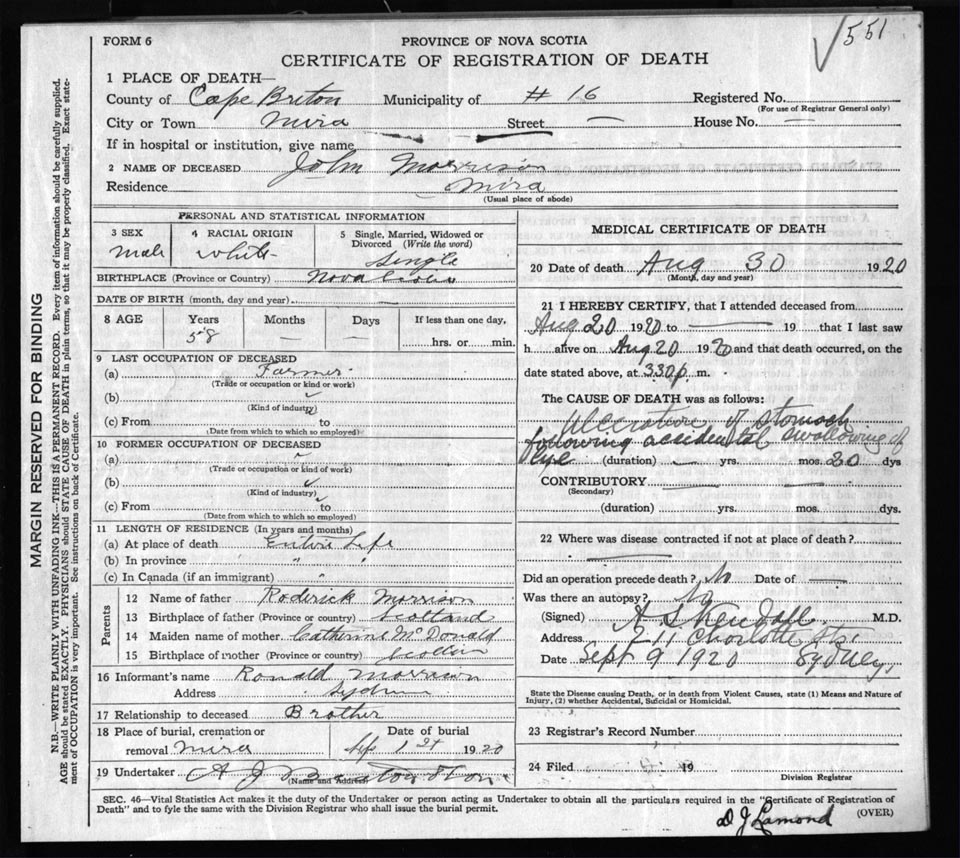 551
FORM 6
PROVINCE OF NOVA SCOTIA
CERTIFICATE OF REGISTRATION OF DEATH
1 PLACE OF DEATH—
County of Cape Breton Municipality of # 16 Registered No.
(For use of Registrar General only)
City or Town Mira Street — House No. —
If in hospital or institution, give name
2 NAME OF DECEASED John Morrison
Residence Mira
(Usual place of abode)
PERSONAL AND STATISTICAL INFORMATION
3 SEX male
4 RACIAL ORIGIN white
5 Single, Married, Widowed or Divorced (Write the word) Single
BIRTHPLACE (Province or Country) Nova Scotia
DATE OF BIRTH (month, day and year)
8 AGE Years 58 Months — Days — If less than one day, hrs. or min.
9 LAST OCCUPATION OF DECEASED
(a) Farmer
(Trade or occupation or kind or work)
(b)
(Kind of industry)
(c) From to
(Date from which to which so employed)
10 FORMER OCCUPATION OF DECEASED
(a)
(Trade or occupation or kind of work)
(b)
(Kind of industry)
(c) From to
(Date from which to which so employed)
11 LENGTH OF RESIDENCE (In years and months)
(a) At place of death Entire Life
(b) In province " "
(c) In Canada (if an immigrant) "
Parents
12 Name of father Roderick Morrison
13 Birthplace of father (Province or country) Scotland
14 Maiden name of mother Catherine McDonald
15 Birthplace of mother (Province or country)
16 Informant's name Ronald Morrison
Address Sydney
17 Relationship to deceased Brother
18 Place of burial, cremation or removal Mira
Date of burial 1st 1920
19 Undertaker A J
(Name and Address)
MEDICAL CERTIFICATE OF DEATH
20 Date of death Aug 30 1920
(Month, day and year)
21 I HEREBY CERTIFY, that I attended deceased from
Aug 20 1920 to — 19 that I last saw
h alive on Aug 20 1920 and that death occurred, on the
date stated above, at 3.30 p. m.
The CAUSE OF DEATH was as follows:
Ulceration of stomach
following accidental swallowing of
lye (duration) — yrs. mos. 20 dys
CONTRIBUTORY
(Secondary)
(duration) yrs. mos. dys.
22 Where was disease contracted if not at place of death?
Did an operation precede death? No Date of —
Was there an autopsy? No
(Signed) A S Kendall M.D.
Address 211 Charlotte St.
Date Sept 9 1920 Sydney
State the Disease causing Death, or in death from Violent Causes, state (1) Means and Nature of
Injury, (2) whether Accidental, Suicidal or Homicidal.
23 Registrar's Record Number
24 Filed 19
Division Registrar
SEC. 46—Vital Statistics Act makes it the duty of the Undertaker or person acting as Undertaker to obtain all the particulars required in the "Certificate of Registration of
Death" and to fyle the same with the Division Registrar who shall issue the burial permit.
(OVER)
D J Lamond
MARGIN RESERVED FOR BINDING
N.B.—WRITE PLAINLY WITH UNFADING INK—THIS IS A PERMANENT RECORD. Every item of information should be carefully supplied.
AGE should be stated EXACTLY. PHYSICIANS should STATE CAUSE OF DEATH in plain terms, so that it may be properly classified. Exact state-
ment of OCCUPATION is very important. See instructions on back of Certificate.